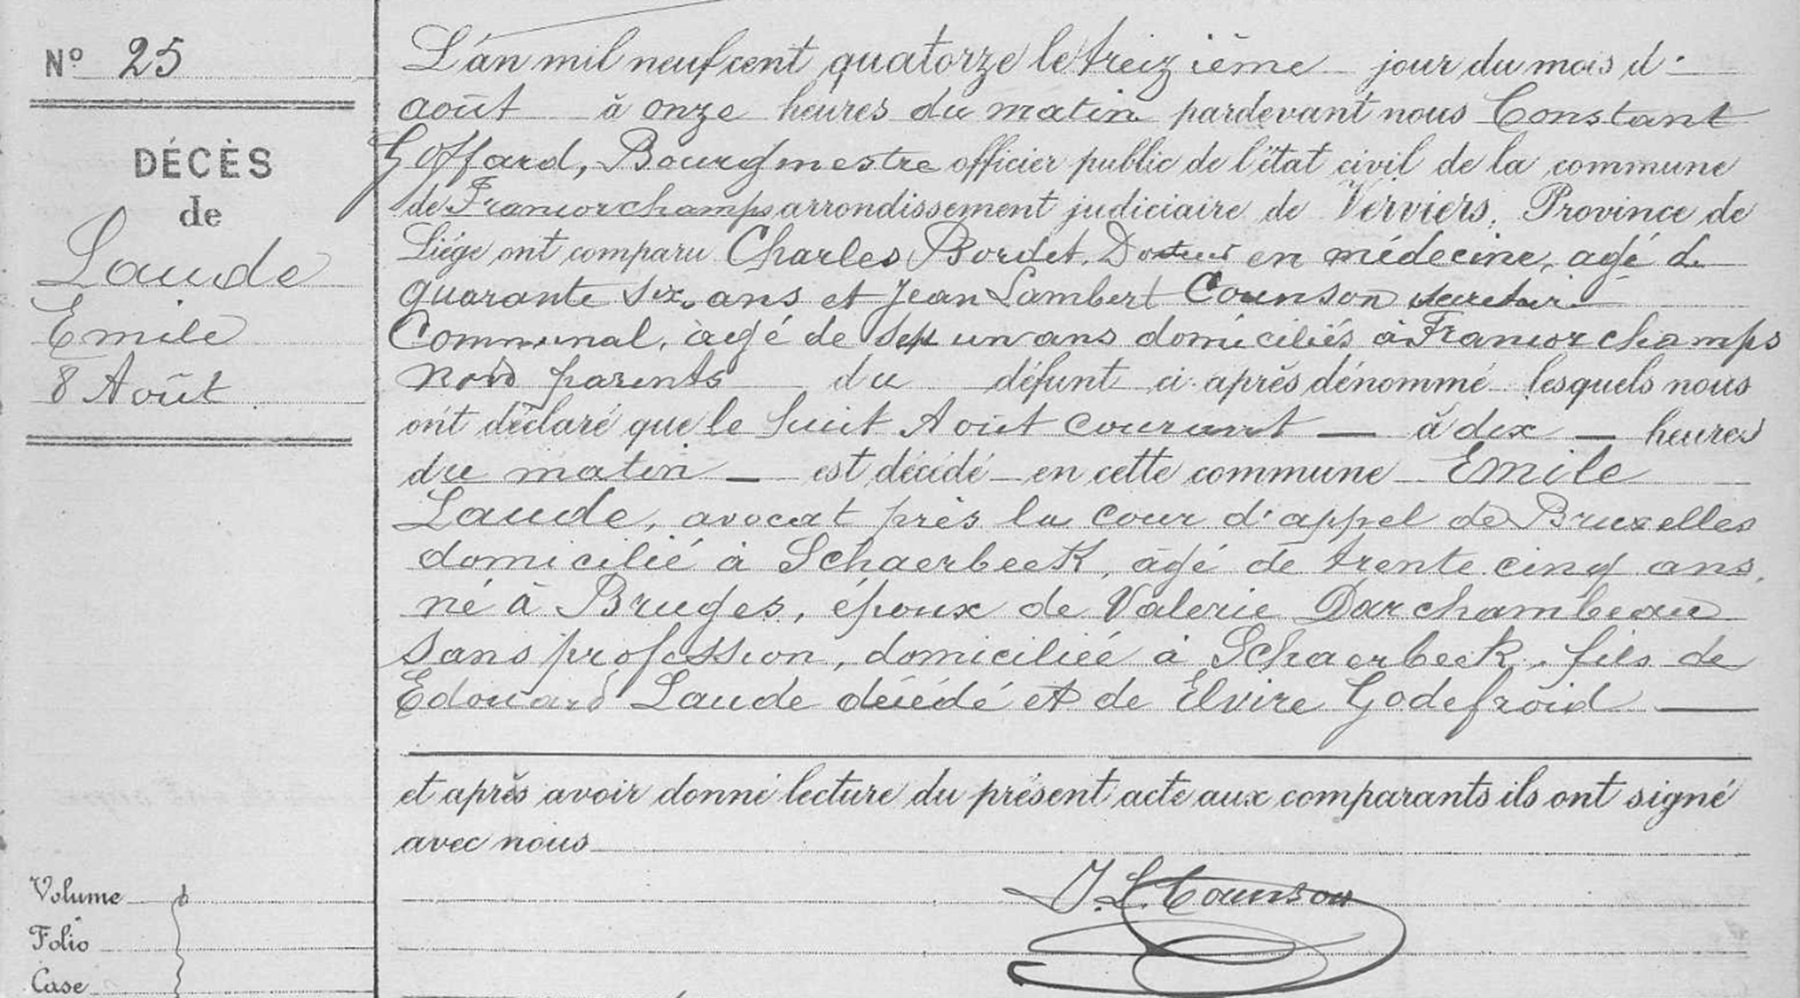 Nº 25
DÉCÈS
de
Laude
Emile
8 Août
L'an mil neuf cent quatorze le treizième jour du mois d'
août à onze heures du matin pardevant nous Constant
Goffard, Bourgmestre officier public de l'état civil de la commune
de Francorchamps arrondissement judiciaire de Verviers, Province de
Liége ont comparu Charles Bordet, Docteur en médecine, agé de
quarante six ans et Jean Lambert Counson secretaire
Communal, agé de un ans domiciliés à Francorchamps
non parents du défunt ci après dénommé lesquels nous
ont déclaré que le huit Août courant — à dix — heures
du matin — est décédé en cette commune Emile
Laude, avocat près la cour d'appel de Bruxelles
domicilié à Schaerbeek, âgé de trente cinq ans,
né à Bruges, époux de Valerie Darchambeau
sans profession, domiciliée à Schaerbeek, fils de
Edouard Laude décédé et de Elvire Godefroid —
et après avoir donné lecture du présent acte aux comparants ils ont signé
avec nous
J. L. Counson
Volume
Folio
Case